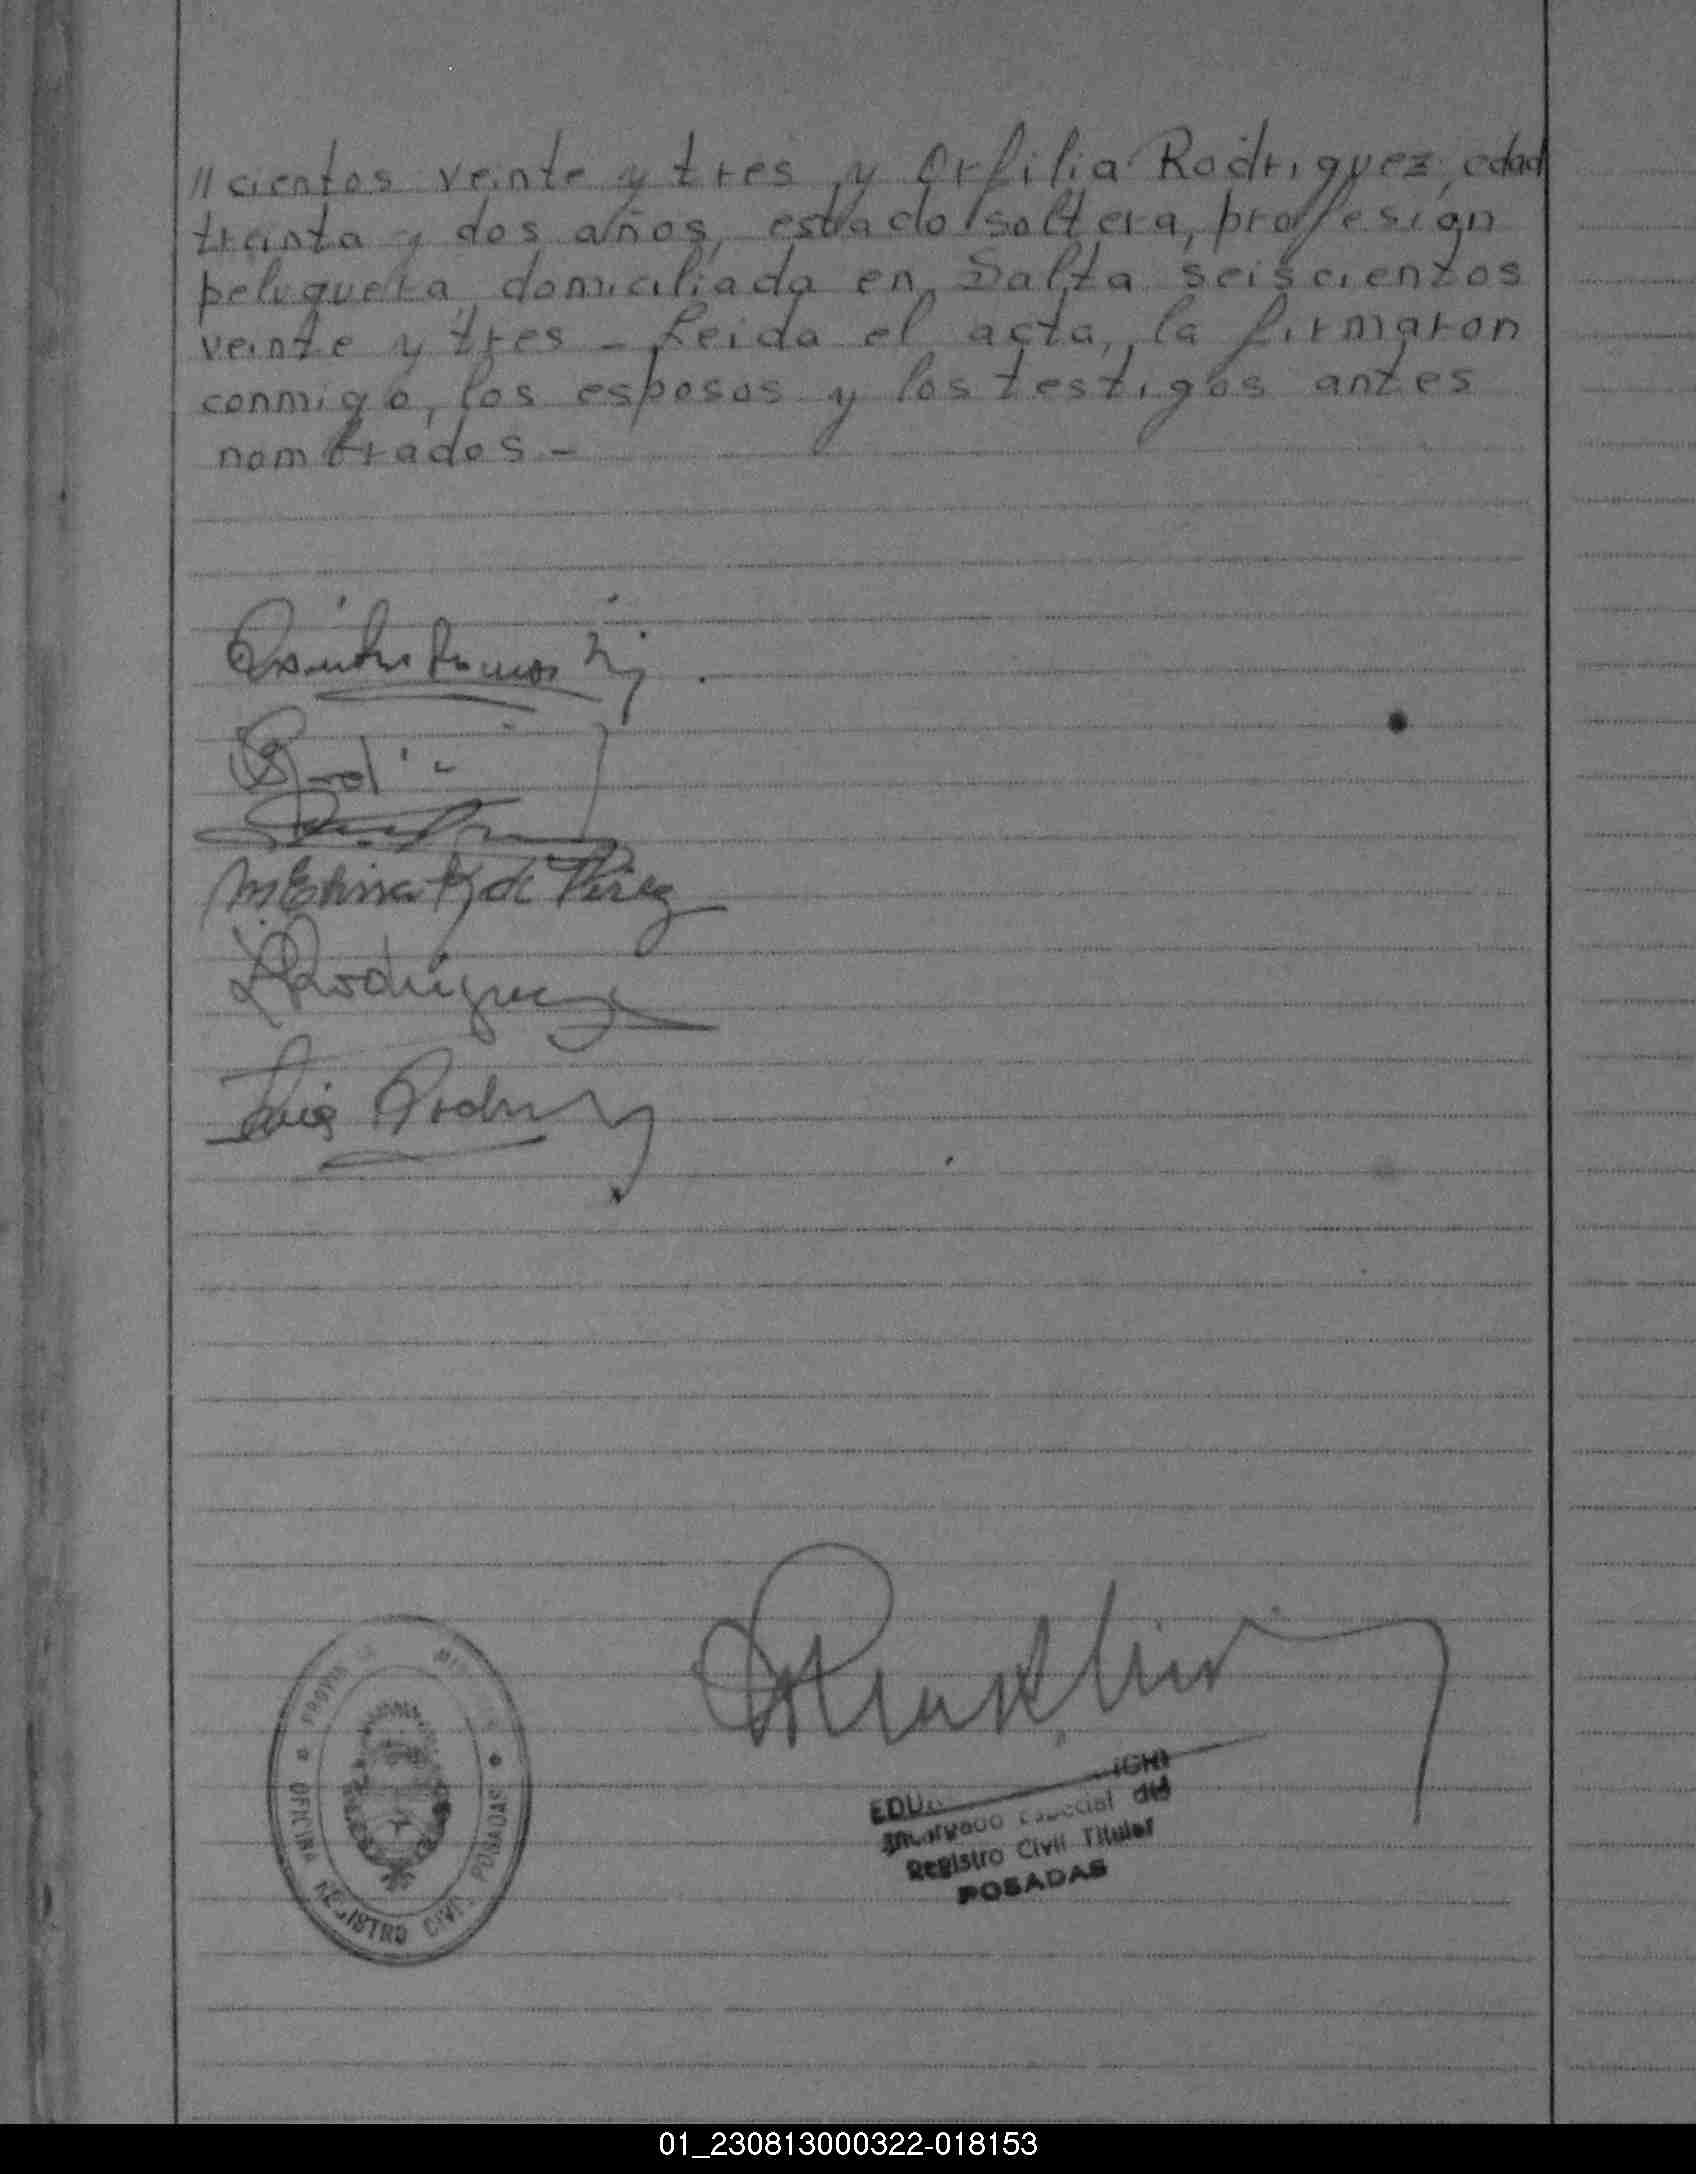 // cientos veinte y tres y Orfilia Rodriguez, edad
treinta y dos años, estado soltera, profesión
peluquera, domiciliada en Salta seiscientos
veinte y tres - Leida el acta, la firmaron
conmigo, los esposos y los testigos antes
nombrados -
Ramos
M Elina R de Pérez
Rodriguez
Luis
PROVINCIA DE MISIONES
OFICINA REGISTRO CIVIL POSADAS
EDU
Encargado Especial del
Registro Civil Titular
POSADAS
01_230813000322-018153